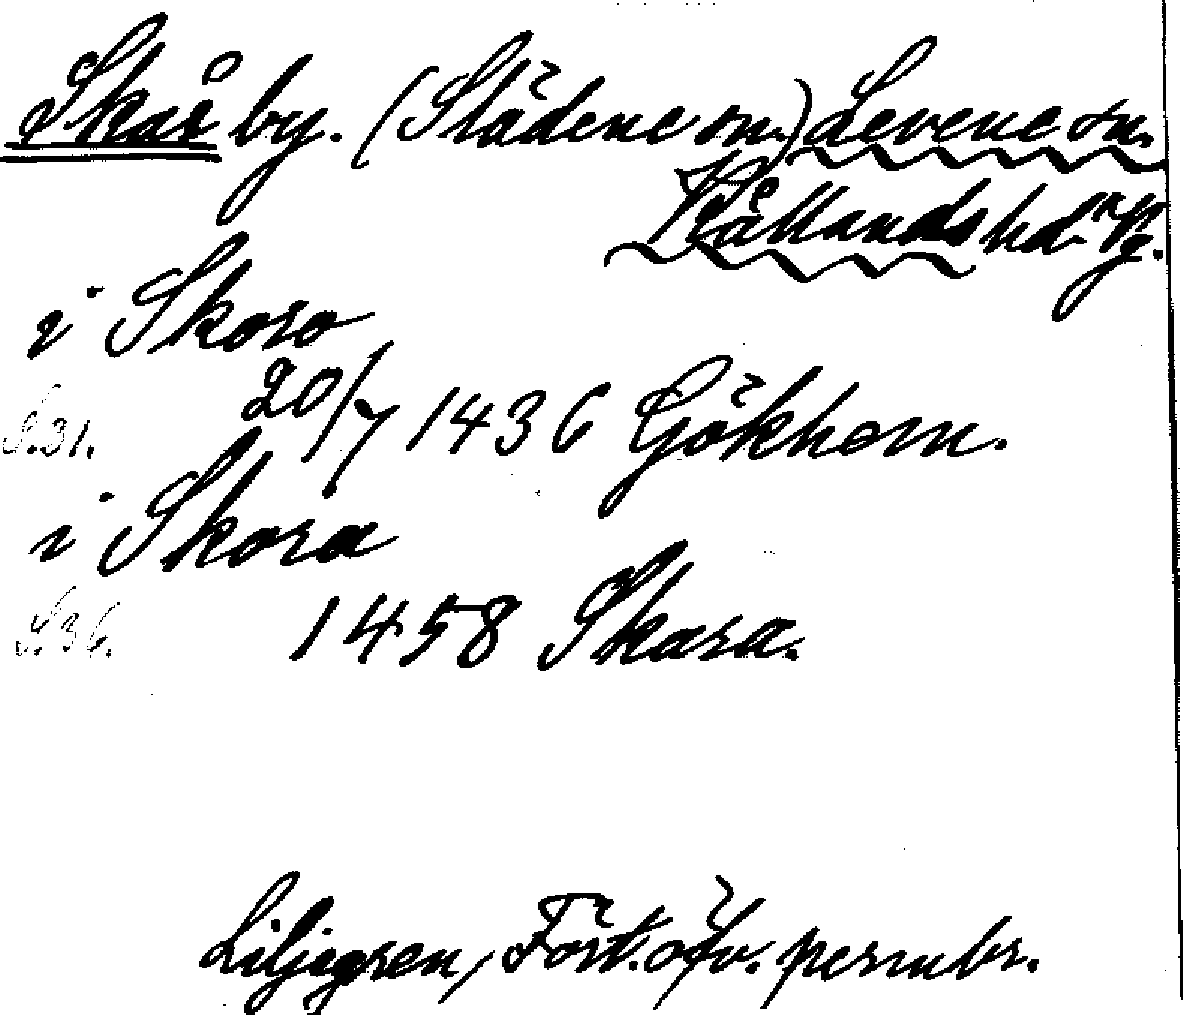 Skår by. (Slädene sn.) Levene sn.
Kållands hd. Vg.
i Skoro
S.31. 20/7 1436 Gökhem.
i Skora
S.36. 1458 Skara.
Liljegren, Fört. öfv. permbr.